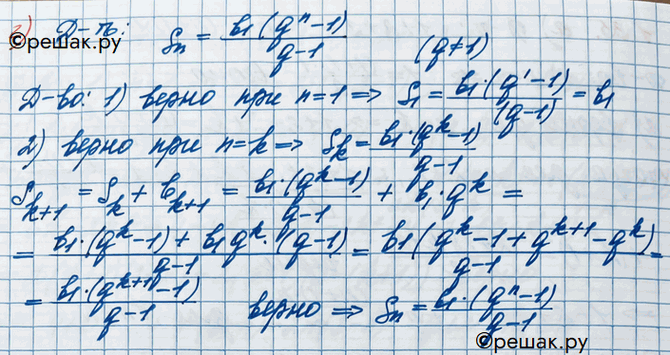 3) Д-ть: Sn = b1(q^n-1)/(q-1) (q≠1)
©решак.ру
Д-во: 1) верно при n=1 ⇒ S1 = b1·(q^1-1)/(q-1) = b1
2) верно при n=k ⇒ Sk = b1·(q^k-1)/(q-1)
S_{k+1} = S_k + b_{k+1} = b1·(q^k-1)/(q-1) + b1·q^k =
= (b1·(q^k-1) + b1q^k·(q-1))/(q-1) = b1(q^k-1+q^{k+1}-q^k)/(q-1) =
= b1·(q^{k+1}-1)/(q-1) верно ⇒ Sn = b1·(q^n-1)/(q-1)
©решак.ру